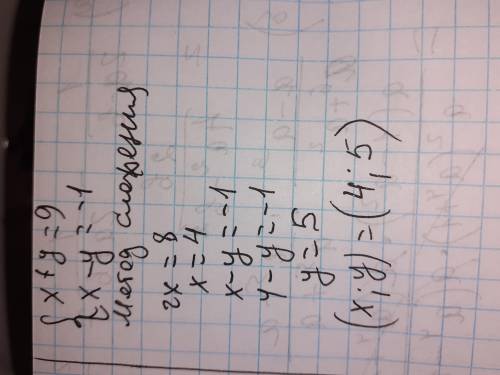 { x+y=9
{ x-y=-1
Метод сложения
2x=8
x=4
x-y=-1
4-y=-1
y=5
(x;y)=(4;5)